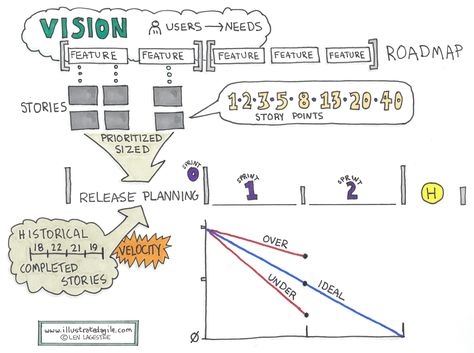 VISION
USERS → NEEDS
FEATURE FEATURE FEATURE FEATURE FEATURE
ROADMAP
STORIES
1·2·3·5·8·13·20·40
STORY POINTS
PRIORITIZED
SIZED
RELEASE PLANNING
SPRINT 0
SPRINT 1
SPRINT 2
H
HISTORICAL
18, 22, 21, 19
COMPLETED
STORIES
VELOCITY
OVER
IDEAL
UNDER
Ø
www.illustratedagile.com
© LEN LAGESTEE